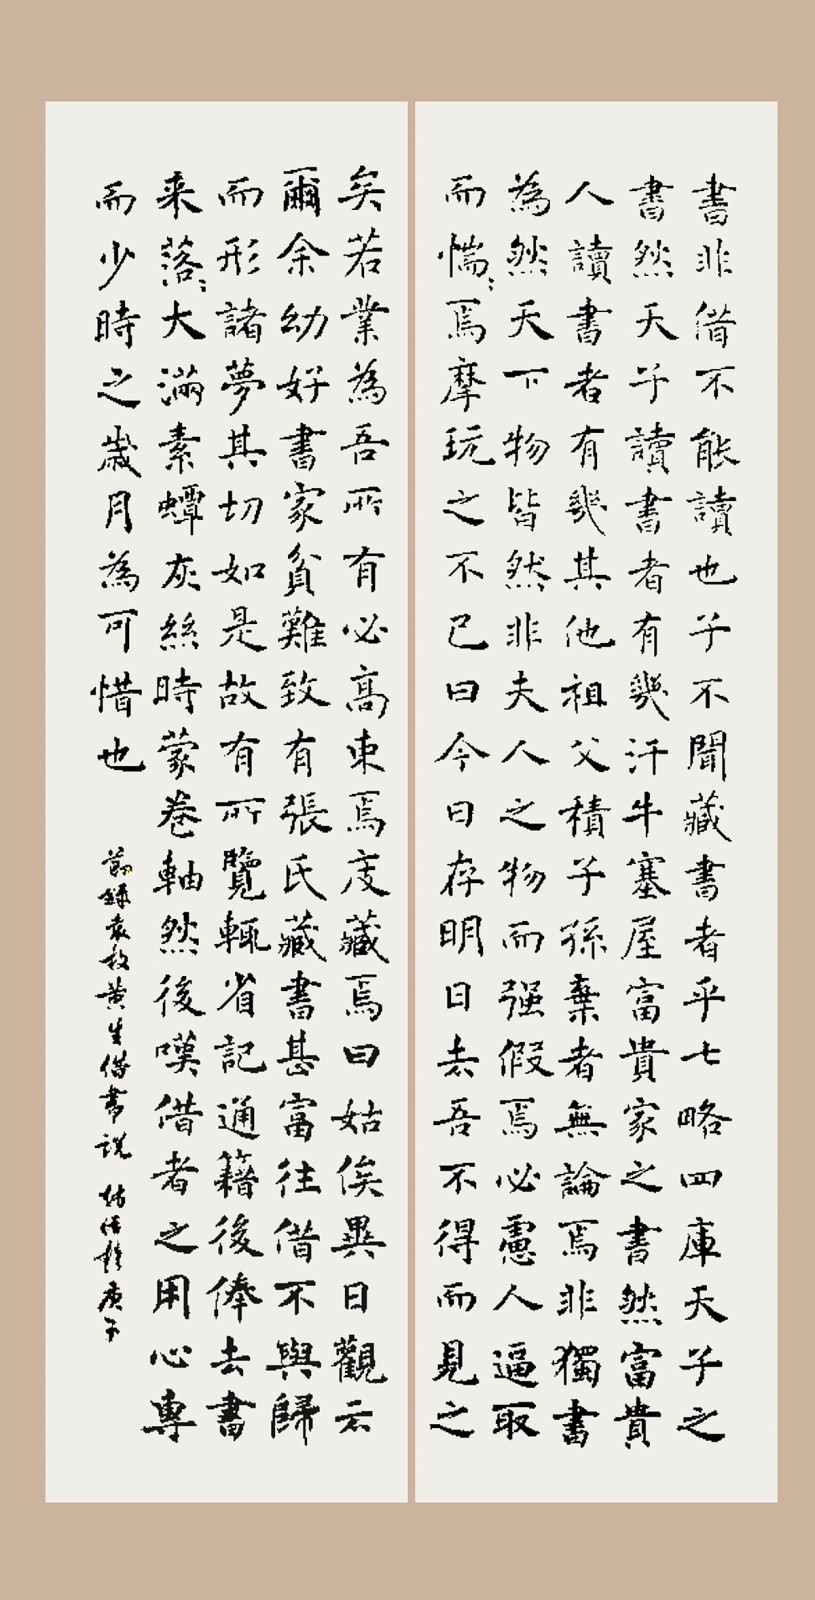 書非借不能讀也子不聞藏書者乎七略四庫天子之
書然天子讀書者有幾汗牛塞屋富貴家之書然富貴
人讀書者有幾其他祖父積子孫棄者無論焉非獨書
為然天下物皆然非夫人之物而强假焉必慮人逼取
而惴〻焉摩玩之不已曰今日存明日去吾不得而見之
矣若業為吾所有必高束焉庋藏焉曰姑俟異日觀云
爾余幼好書家貧難致有張氏藏書甚富往借不與歸
而形諸夢其切如是故有所覽輒省記通籍後俸去書
来落〻大滿素蟫灰絲時蒙卷軸然後嘆借者之用心專
而少時之歲月為可惜也
節録袁枚黄生借書說